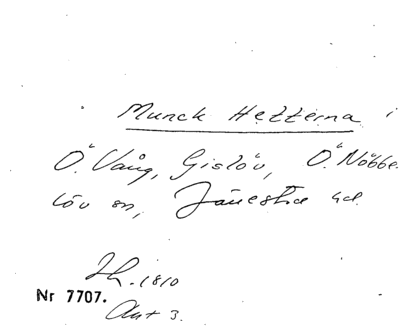 Munck Hetterna i
Ö. Vång, Gislöv, Ö. Nöbbe-
löv sn, Järrestad hd.
1810
Nr 7707.
Ant 3.